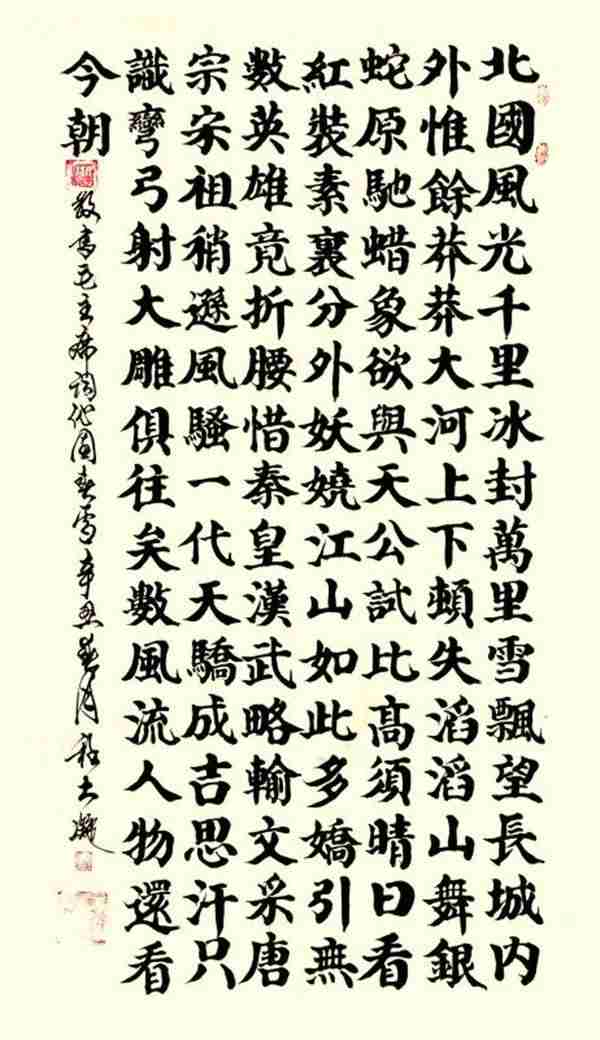 北國風光千里冰封萬里雪飄望長城内
外惟餘莽莽大河上下頓失滔滔山舞銀
蛇原馳蜡象欲與天公試比高須晴日看
紅裝素裹分外妖嬈江山如此多嬌引無
數英雄竟折腰惜秦皇漢武略輸文采唐
宗宋祖稍遜風騷一代天驕成吉思汗只
識彎弓射大雕俱往矣數風流人物還看
今朝
敬書毛主席詞沁園春雪辛巳春月